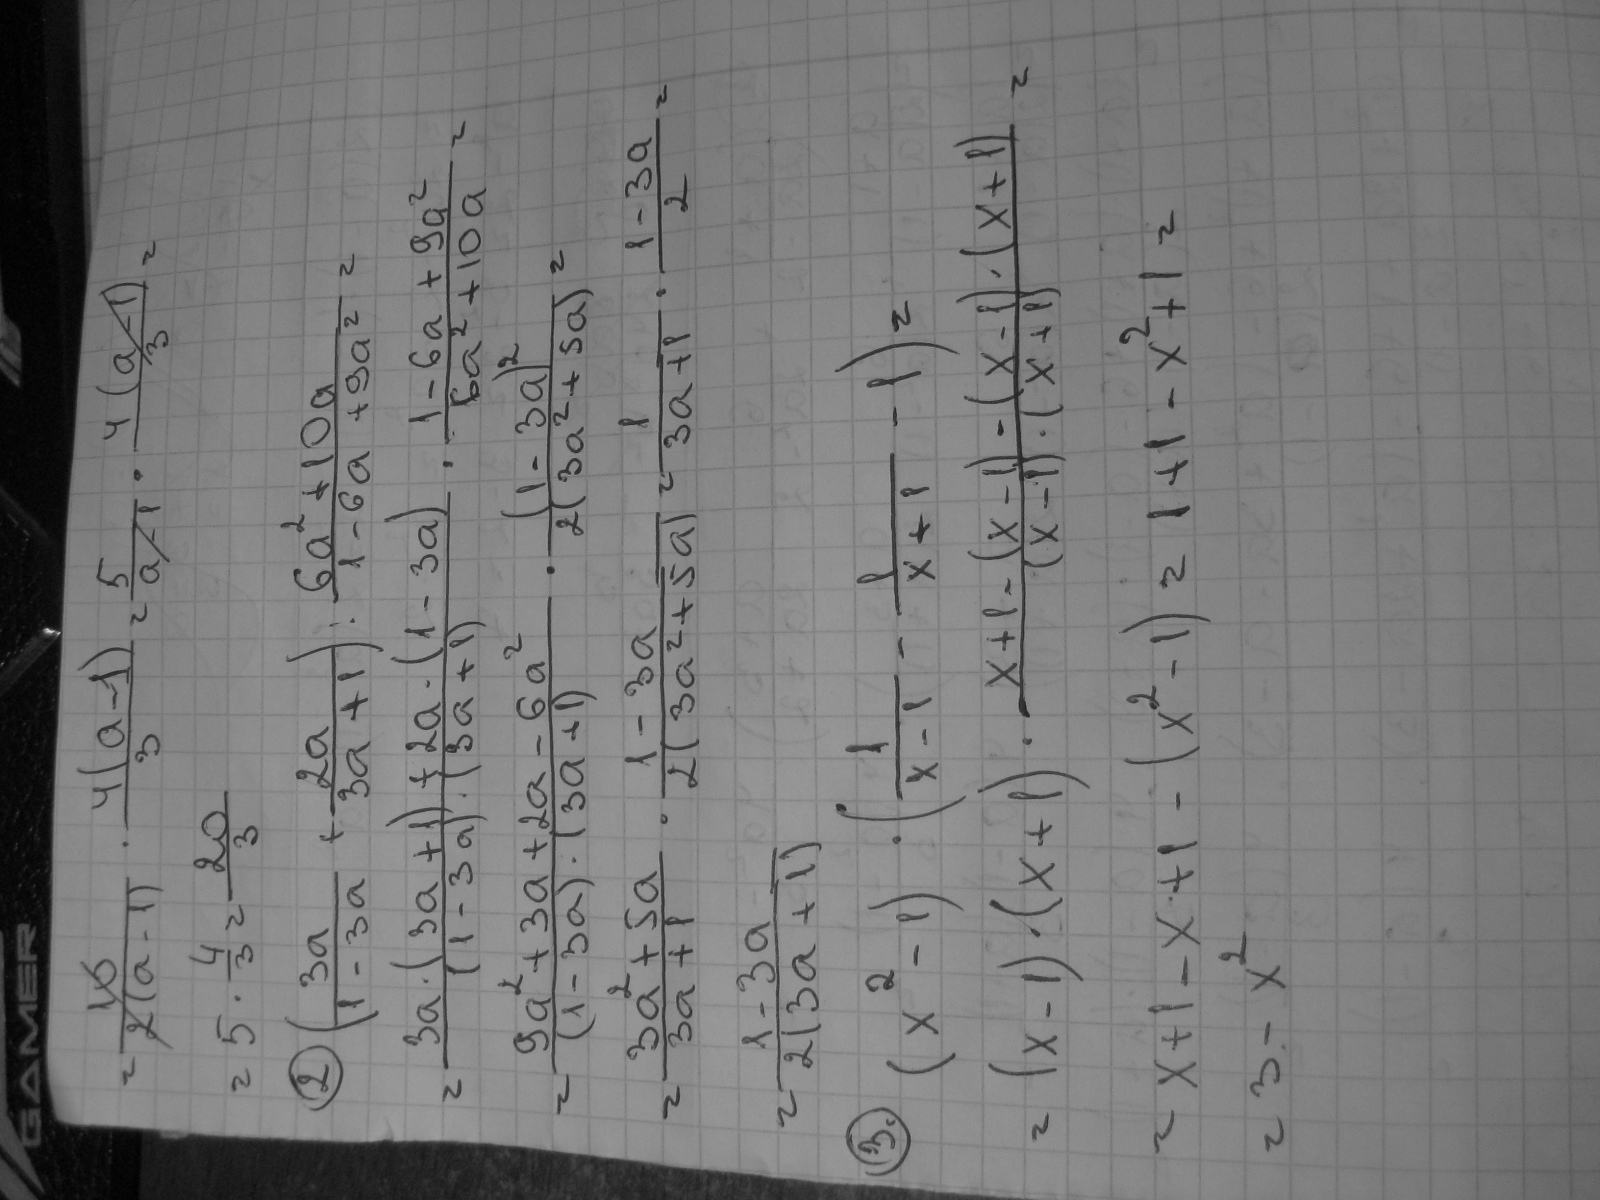 GAMER
= 10/2(a-1) · 4(a-1)/3 = 5/a-1 · 4(a-1)/3 =
= 5 · 4/3 = 20/3
② (3a/1-3a + 2a/3a+1) : 6a²+10a/1-6a+9a² =
= 3a·(3a+1)+2a·(1-3a)/(1-3a)·(3a+1) · 1-6a+9a²/6a²+10a =
= 9a²+3a+2a-6a²/(1-3a)·(3a+1) · (1-3a)²/2(3a²+5a) =
= 3a²+5a/3a+1 · 1-3a/2(3a²+5a) = 1/3a+1 · 1-3a/2 =
= 1-3a/2(3a+1)
③. (x²-1) · (1/x-1 - 1/x+1 - 1) =
= (x-1)·(x+1) · x+1-(x-1)-(x-1)·(x+1)/(x-1)·(x+1) =
= x+1-x+1-(x²-1) = 1+1-x²+1 =
= 3-x²